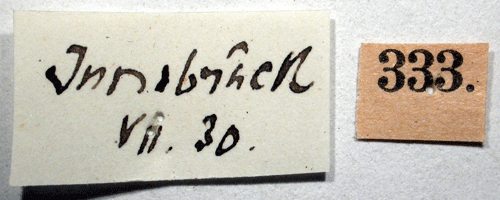 Innsbruck
VII. 30.
333.